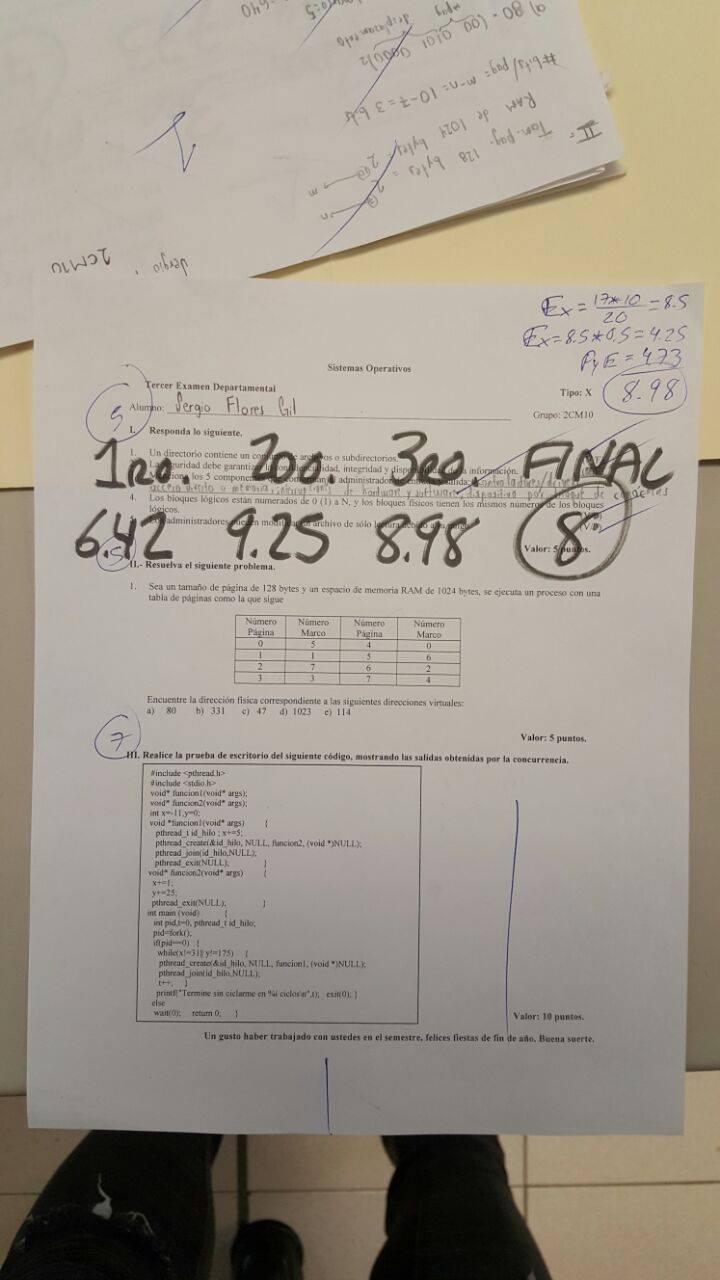 -640
a) 80 = (00 0101 0000)2
mpag desplazamiento
#bits/pag= m-n=10-7=3 bits
RAM de 1024 bytes = 2
Tam. pag. 128 bytes = 2
II.-
Sergio
2CM10
Ex= 17*10/20 =8.5
Ex=8.5*0.5=4.25
PyE = 4.73
8.98
Sistemas Operativos
Tercer Examen Departamental
Tipo: X
5
Alumno: Sergio Flores Gil
Grupo: 2CM10
I. Responda lo siguiente.
1. Un directorio contiene un de archivos o subdirectorios.
seguridad debe garantizar la integridad y de la información.
los 5 administrador
acceso directo a memoria, de hardware y software, dispositivo por bloque de
4. Los bloques lógicos están numerados de 0 (1) a N, y los bloques físicos tienen los mismos números de los bloques
lógicos.
administradores pueden archivo de sólo
Valor: 5 puntos.
1RO. 2DO. 3RO. FINAL
6.42 9.25 8.98 8
5
II.- Resuelva el siguiente problema.
1. Sea un tamaño de página de 128 bytes y un espacio de memoria RAM de 1024 bytes, se ejecuta un proceso con una
tabla de páginas como la que sigue
Número Página Número Marco Número Página Número Marco
0 5 4 0
1 1 5 6
2 7 6 2
3 3 7 4
Encuentre la dirección física correspondiente a las siguientes direcciones virtuales:
a) 80 b) 331 c) 47 d) 1023 e) 114
Valor: 5 puntos.
7
III. Realice la prueba de escritorio del siguiente código, mostrando las salidas obtenidas por la concurrencia.
#include <pthread.h>
#include <stdio.h>
void* funcion1(void* args);
void* funcion2(void* args);
int x=-11,y=0;
void *funcion1(void* args) {
pthread_t id_hilo ; x+=5;
pthread_create(&id_hilo, NULL, funcion2, (void *)NULL);
pthread_join(id_hilo,NULL);
pthread_exit(NULL); }
void* funcion2(void* args) {
x+=1;
y+=25;
pthread_exit(NULL); }
int main (void) {
int pid,t=0, pthread_t id_hilo;
pid=fork();
if(pid==0) {
while(x!=31|| y!=175) {
pthread_create(&id_hilo, NULL, funcion1, (void *)NULL);
pthread_join(id_hilo,NULL);
t++; }
printf("Termine sin ciclarme en %i ciclos\n",t); exit(0); }
else
wait(0); return 0; }
Valor: 10 puntos.
Un gusto haber trabajado con ustedes en el semestre, felices fiestas de fin de año. Buena suerte.